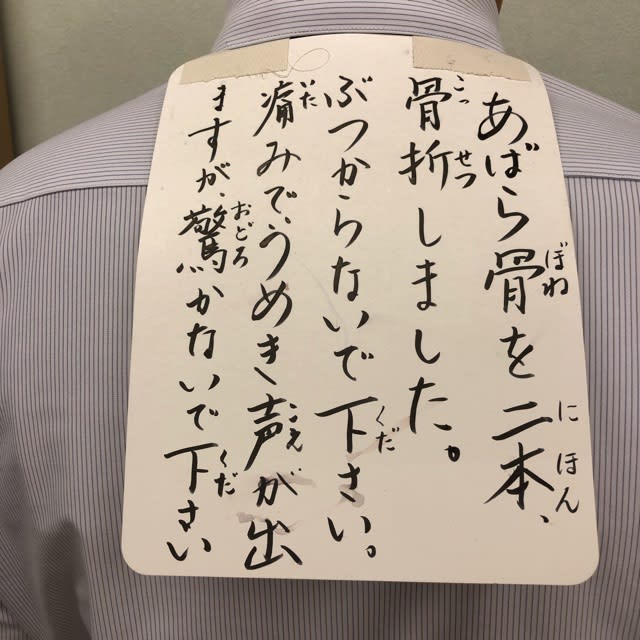 あばら骨を二本、
骨折しました。
ぶつからないで下さい。
痛みで、うめき声が出
ますが、驚かないで下さい
ぼね
にほん
こっせつ
くだ
いた
こえ
おどろ
くだ